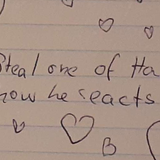 Steal one of Ha
how he reacts
B